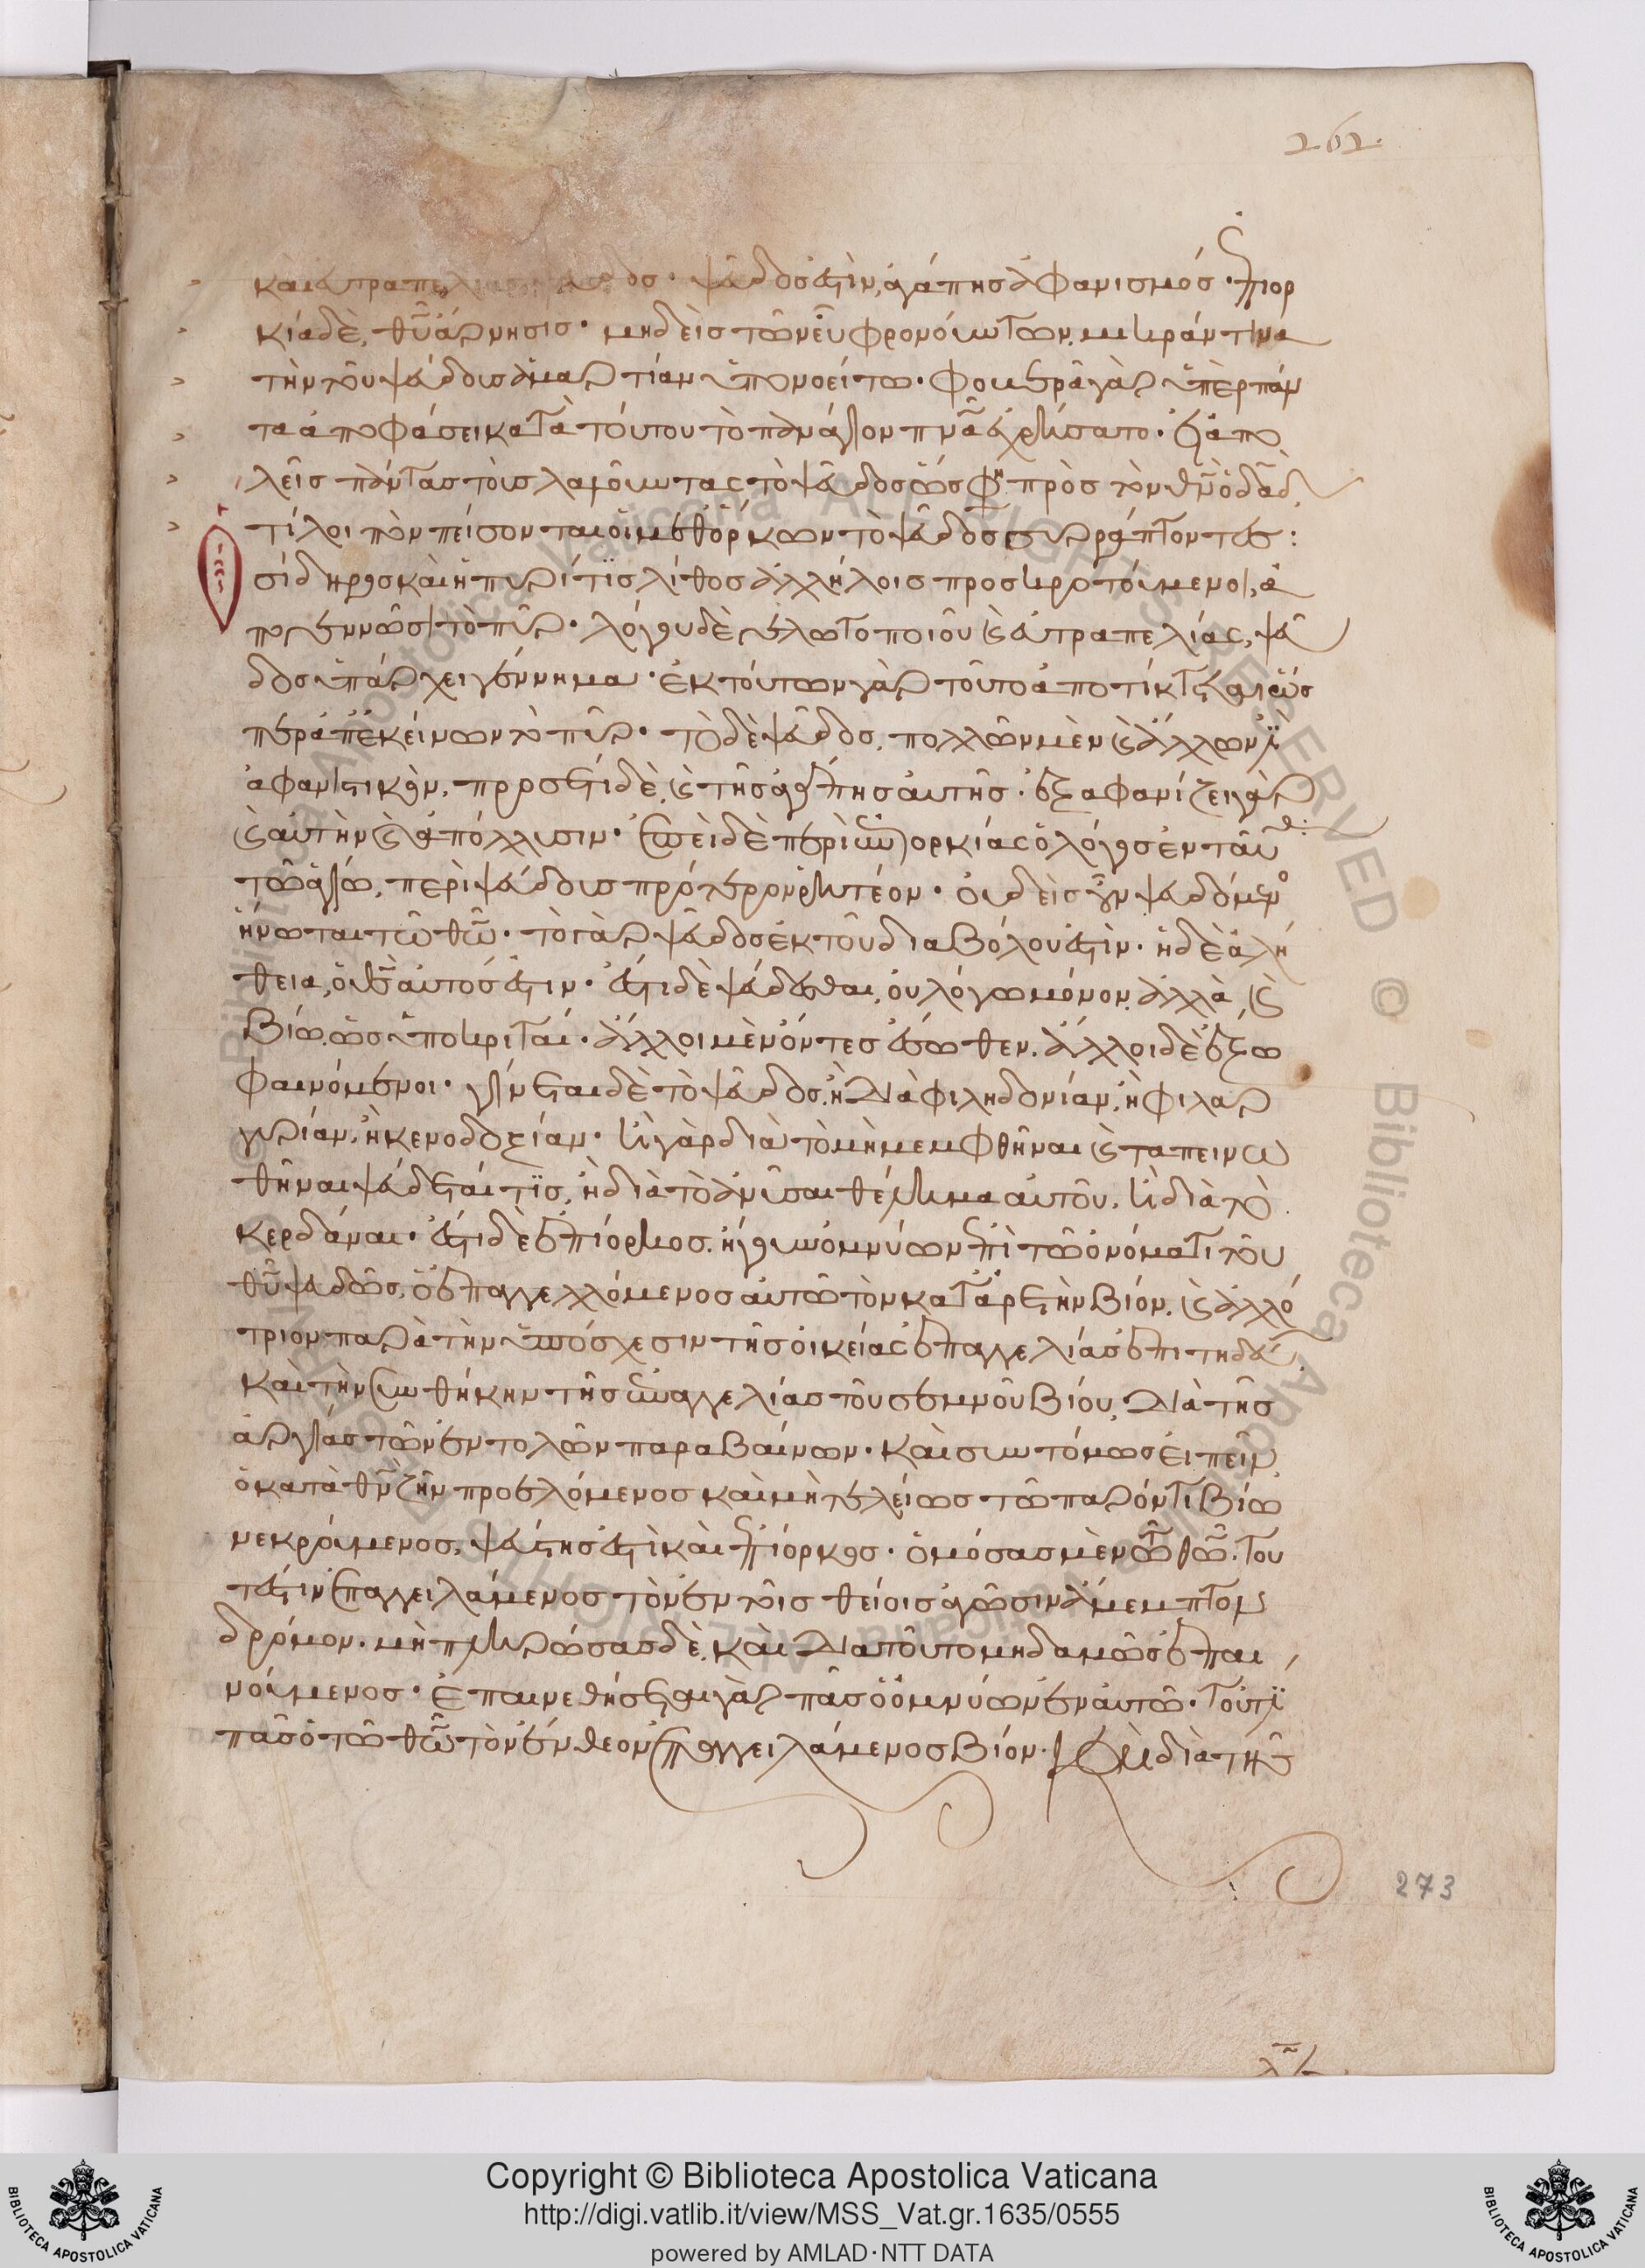 262
καὶ εὐτραπελίας ψεῦδος· ψεῦδος ἐστὶν, ἀγάπης ἀφανισμός· ἐπιορ
κία δὲ, θῦ ἄρνησις· μηδεὶς τῶν εὖ φρονούντων, μικράν τινα
τὴν τοῦ ψεύδους ἁμαρτίαν ὑπονοείτω· φοβερᾷ γὰρ ὑπὲρ πάν
τα ἀποφάσει κατὰ τούτου τὸ πανάγιον πνᾶ ἐχρήσατο· εἰ ἀπο
λεῖς πάντας τοὺς λαλοῦντας τὸ ψεῦδος ὥς φη πρὸς τὸν θν ὁ δαδ,
τί λοιπὸν πείσονται οἱ μεθ' ὅρκων τὸ ψεῦδος συρράπτοντες:
σίδηρος καὶ ἡ πυρίτις λίθος ἀλλήλοις προσκροτούμενοι, ἀ
πογεννῶσι τὸ πῦρ· λόγου δὲ γελωτοποιοῦ καὶ εὐτραπελίας, ψεῦ
δος ὑπάρχει γέννημα· ἐκ τούτων γὰρ τοῦτο ἀποτίκτεται ὥσ
περ ἀπ' ἐκείνων τὸ πῦρ· τὸ δὲ ψεῦδος, πολλῶν μὲν καὶ ἄλλων ἐστὶ
ἀφανιστικὸν, προσέτι δὲ, καὶ τῆς ἀγάπης αὐτῆς· ἐξαφανίζει γὰρ
καὶ αὐτὴν καὶ ἀπόλλυσιν· ἐπεὶ δὲ περὶ ἐπιορκίας ὁ λόγος ἐνταῦθα
τῶ ἁγίω, περὶ ψεύδους πρότερον ῥητέον· οὐδεὶς οὖν ψευδόμενος
ἥνωται τῶ θῶ· τὸ γὰρ ψεῦδος ἐκ τοῦ διαβόλου ἐστὶν· ἡ δὲ ἀλή
θεια, ὁ θς αὐτὸς ἐστιν· ἔστι δὲ ψεύδεσθαι, οὐ λόγω μόνον, ἀλλὰ, καὶ
βίω, ὡς ὑποκριταί· ἄλλοι μὲν ὄντες ἔσωθεν, ἄλλοι δὲ ἔξω
φαινόμενοι· γίνεται δὲ τὸ ψεῦδος, ἢ διὰ φιληδονίαν, ἢ φιλαρ
γυρίαν, ἢ κενοδοξίαν· ἢ γὰρ διὰ τὸ μὴ μεμφθῆναι καὶ ταπεινω
θῆναι ψεύδεταί τις, ἢ διὰ τὸ ἀνύσαι θέλημα αὐτοῦ, ἢ διὰ τὸ
κερδάναι· ἔστι δὲ ἐπίορκος, ἤγουν ὀμνύων ἐπὶ τῶ ὀνόματι τοῦ
θῦ ψευδῶς, ὁ ἐπαγγελλόμενος αὐτῶ τὸν κατ' ἀρετὴν βίον, καὶ ἀλλό
τριον παρὰ τὴν ὑπόσχεσιν τῆς οἰκείας ἐπαγγελίας ἐπιτηδεύ
καὶ τὴν συνθήκην τῆς ἐπαγγελίας τοῦ σεμνοῦ βίου, διὰ τῆς
ἀργίας τῶν ἐντολῶν παραβαίνων· καὶ συντόμως εἰπεῖν,
ὁ κατὰ θν ζῆν προελόμενος καὶ μὴ τελείως τῶ παρόντι βίω
νεκρούμενος, ψεύστης ἐστὶ καὶ ἐπίορκος· ὀμόσας μὲν τῶ θῶ, του
τέστιν ἐπαγγειλάμενος τὸν ἐν τοῖς θείοις ἀγῶσιν ἄμεμπτον
δρόμον· μὴ πληρώσας δὲ, καὶ διατοῦτο μηδαμῶς ἐπαι
νούμενος· ἐπαινεθήσεται γὰρ πᾶς ὁ ὀμνύων ἐν αὐτῶ· τουτέστι
πᾶς ὁ τῶ θῶ τὸν ἔνθεον ἐπαγγειλάμενος βίον· καὶ διὰ τῆς
273
Copyright © Biblioteca Apostolica Vaticana
http://digi.vatlib.it/view/MSS_Vat.gr.1635/0555
powered by AMLAD·NTT DATA
BIBLIOTECA APOSTOLICA VATICANA
BIBLIOTECA APOSTOLICA VATICANA